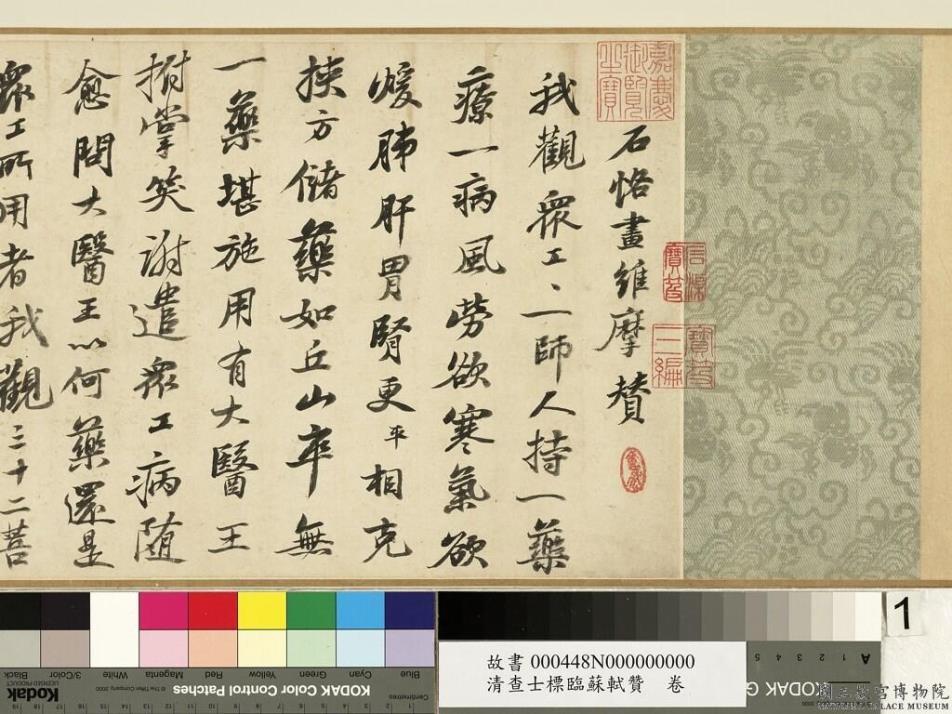 嘉慶御覽之寶
石渠寶笈
寶笈三編
石恪畫維摩贊
我觀衆工、一師人持一藥
療一病風勞欲寒氣欲
煖肺肝胃腎更平相克
挟方儲藥如丘山卒無
一藥堪施用有大醫王
拊掌笑謝遣衆工病随
愈問大醫王以何藥還是
衆工所用者我觀三十二菩
Blue Cyan Green Yellow Red Magenta White 3/Color Black
KODAK Color Control Patches
Kodak
Centimetres
KODAK G
A 1 2 3 4 5
1
故書 000448N000000000
清查士標臨蘇軾贊 卷
國立故宮博物院
NATIONAL PALACE MUSEUM